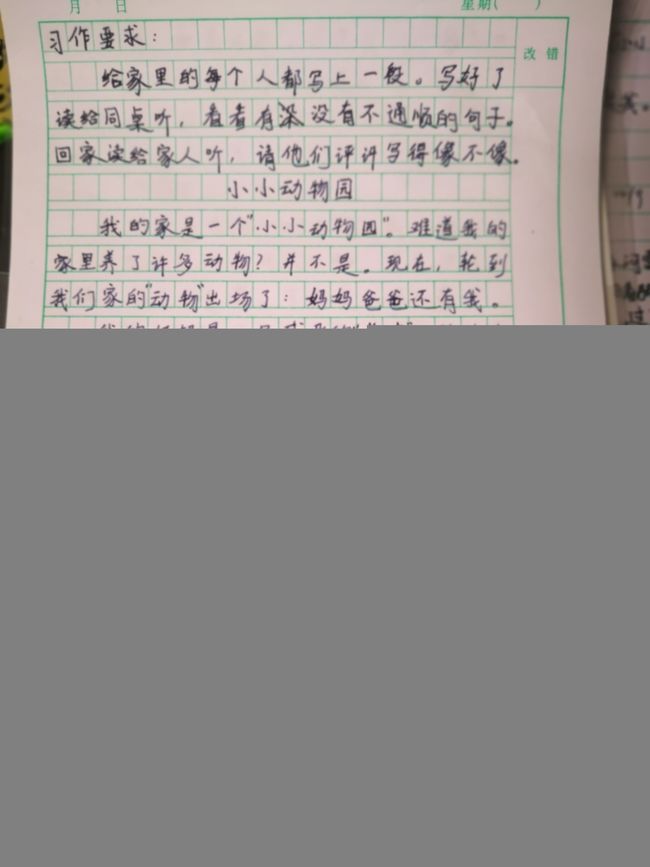 月 日 星期( )
习作要求：
改 错
给家里的每个人都写上一段。写好了
读给同桌听，看看有没有不通顺的句子。
回家读给家人听，请他们评评写得像不像。
小小动物园
我的家是一个"小小动物园"。难道我的
家里养了许多动物？并不是。现在，轮到
我们家的"动物"出场了：妈妈爸爸还有我。